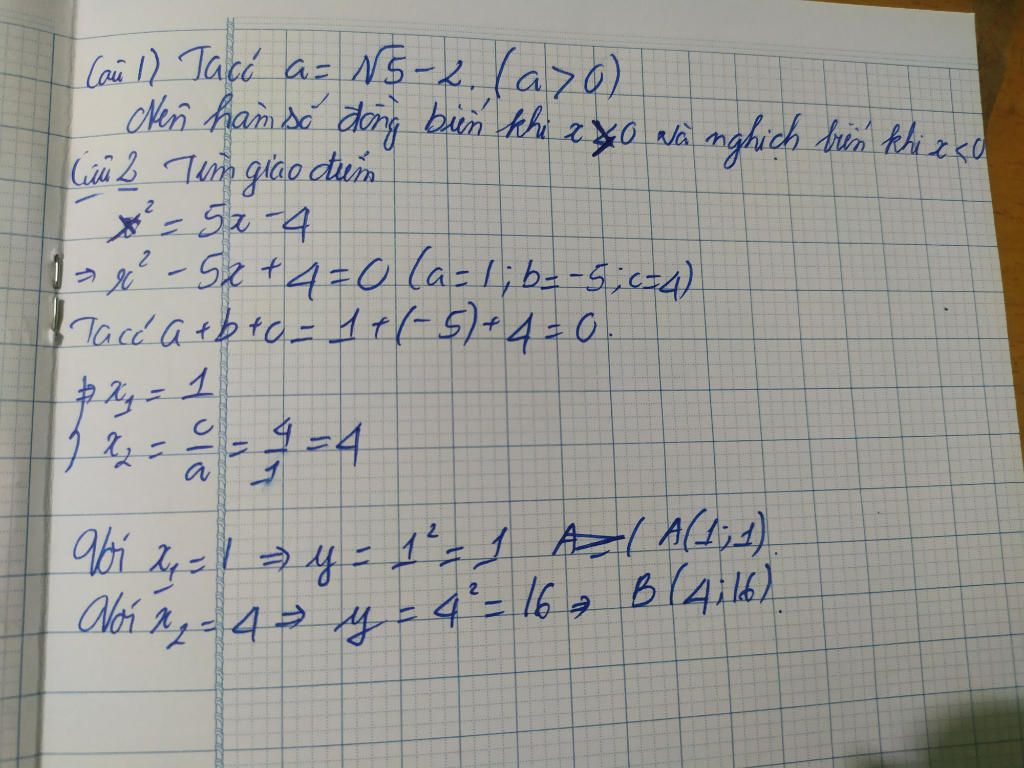 Câu 1) Ta có a = √5 - 2. (a > 0)
Nên hàm số đồng biến khi x > 0 và nghịch biến khi x < 0
Câu 2 Tìm giao điểm
x² = 5x - 4
⇒ x² - 5x + 4 = 0 (a = 1; b = -5; c = 4)
Ta có a + b + c = 1 + (-5) + 4 = 0.
⇒ x₁ = 1
x₂ = c/a = 4/1 = 4
Với x₁ = 1 ⇒ y = 1² = 1 A(1; 1).
Với x₂ = 4 ⇒ y = 4² = 16 ⇒ B(4; 16).